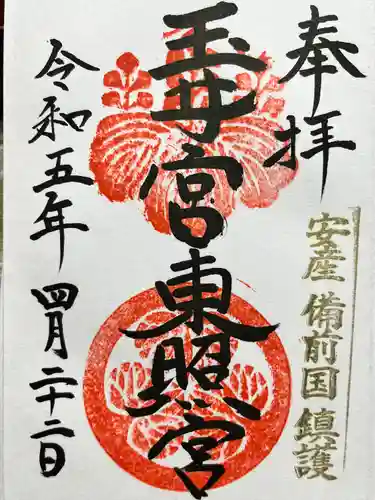 奉拝
安産 備前国 鎮護
玉井宮東照宮
令和五年 四月二十二日